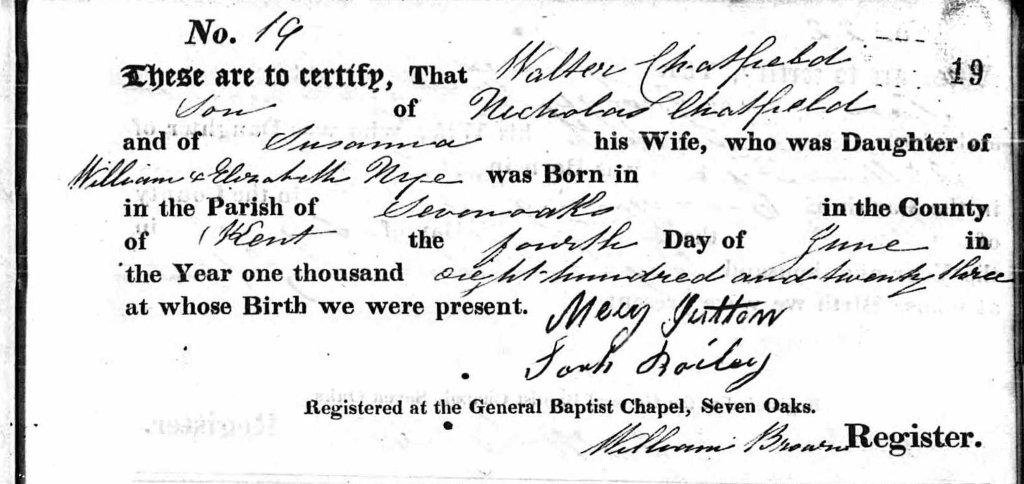 No. 19
These are to certify, That Walter Chatfield 19
Son of Nicholas Chatfield
and of Susanna his Wife, who was Daughter of
William & Elizabeth Nye was Born in
in the Parish of Sevenoaks in the County
of Kent the fourth Day of June in
the Year one thousand eight hundred and twenty three
at whose Birth we were present. Mary
Registered at the General Baptist Chapel, Seven Oaks.
William Brown Register.